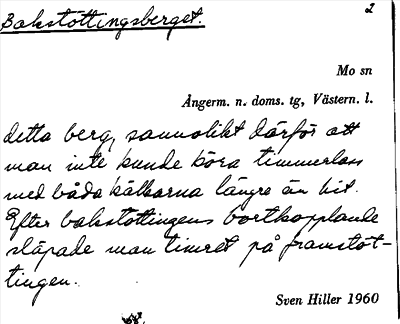 Bakstöttingsberget.
2
Mo sn
Ångerm. n. doms. tg, Västern. l.
detta berg, sannolikt därför att
man inte kunde köra timmerlass
med båda kälkarna längre än hit.
Efter bakstöttingens bortkopplande
släpade man timret på framstöt-
tingen.
Sven Hiller 1960